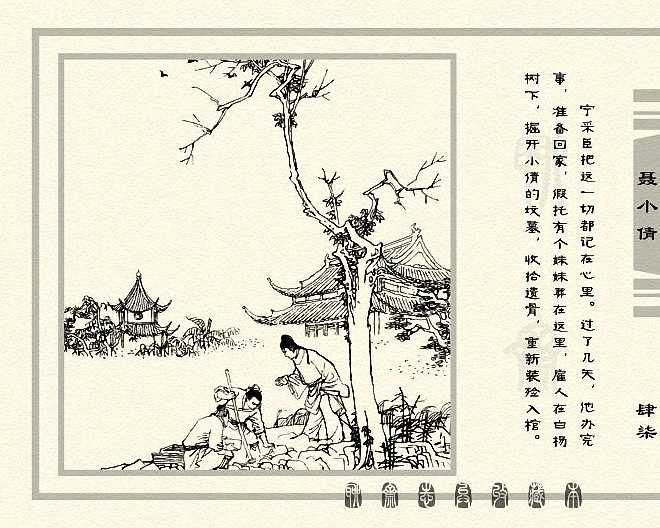 聂小倩
肆柒
宁采臣把这一切都记在心里。过了几天，他办完
事，准备回家，假托有个妹妹葬在这里，雇人在白杨
树下，掘开小倩的坟墓，收拾遗骨，重新装殓入棺。